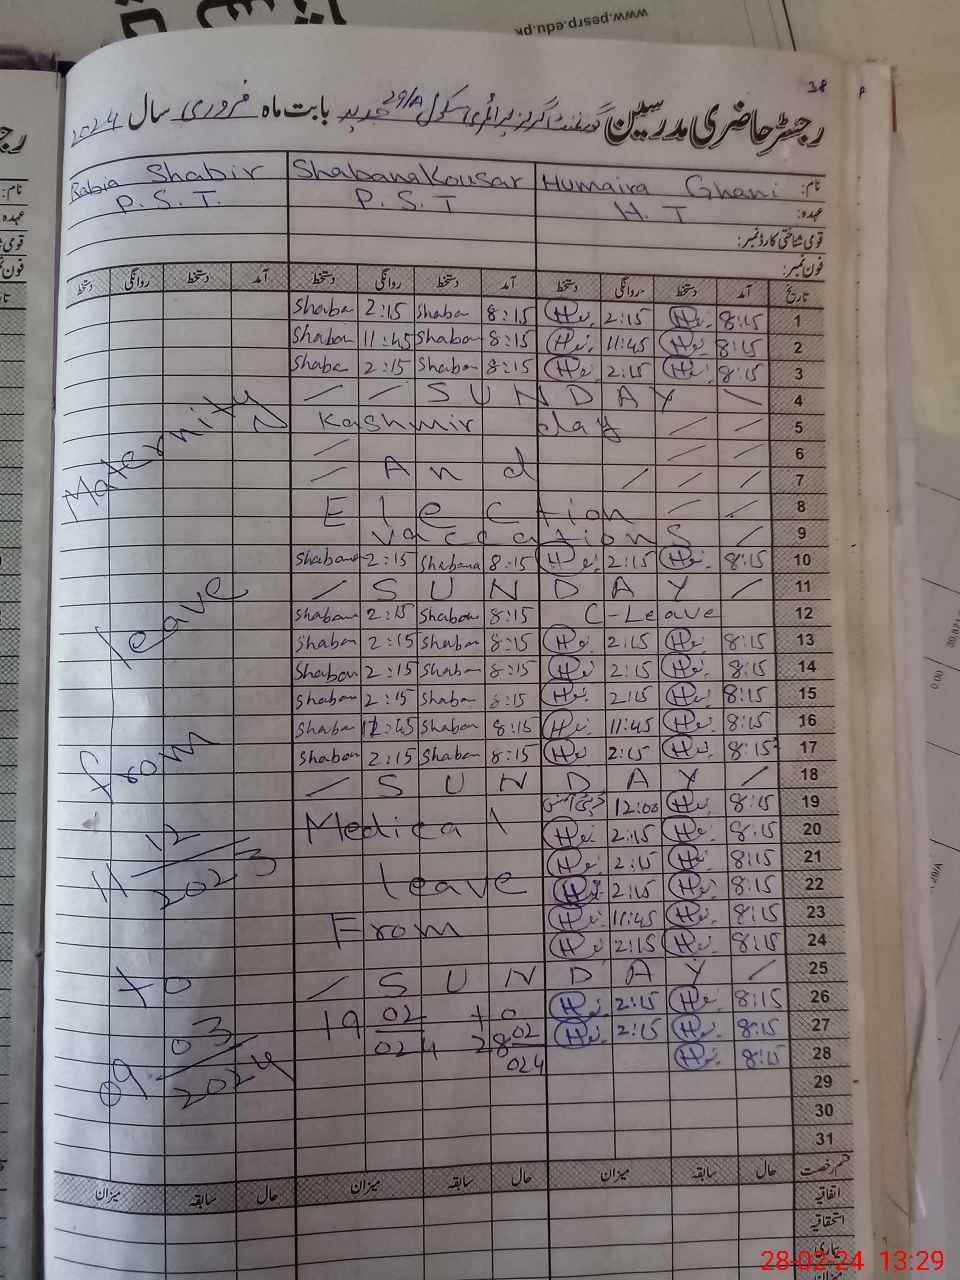 www.pesrp.edu.pk
38
رجسٹر حاضری مدرسین گورنمنٹ گرلز پرائمری سکول 29/A جدید بابت ماہ فروری سال 2024
نام: Humaira Ghani Shabana Kousar Rabia Shabir
عہدہ: H. T P. S. T P. S. T.
قومی شناختی کارڈ نمبر:
فون نمبر:
تاریخ آمد دستخط روانگی دستخط آمد دستخط روانگی دستخط آمد دستخط روانگی دستخط
1 8:15 H 2:15 H 8:15 Shaba 2:15 Shaba
2 8:15 H 11:45 H 8:15 Shaban 11:45 Shaban
3 8:15 H 2:15 H 8:15 Shaba 2:15 Shaba
4 SUNDAY
5 Kashmir day
6
7 And
8 Election
9 vaccations
10 8:15 H 2:15 H 8:15 Shabana 2:15 Shabana
11 SUNDAY
12 C-Leave 8:15 Shaban 2:15 Shaban
13 8:15 H 2:15 H 8:15 Shaban 2:15 Shaban
14 8:15 H 2:15 H 8:15 Shaban 2:15 Shaban
15 8:15 H 2:15 H 8:15 Shaba 2:15 Shaban
16 8:15 H 11:45 H 8:15 Shaban 12:45 Shaban
17 8:15 H 2:15 H 8:15 Shaban 2:15 Shaban
18 SUNDAY
19 8:15 H 12:00
20 8:15 H 2:15 H Medical
21 8:15 H 2:15 H
22 8:15 H 2:15 H leave
23 8:15 H 11:45 H
24 8:15 H 2:15 H From
25 SUNDAY
26 8:15 H 2:15 H
27 8:15 H 2:15 H 19 02/024 to 28 02/024
28 8:15 H
29
30
31
Maternity
leave
from
11 12/2023
to
09 03/2024
قسم رخصت حال سابقہ میزان حال سابقہ میزان حال سابقہ میزان
اتفاقیہ
استحقاقیہ
بیماری
میزان
28-02-24 13:29